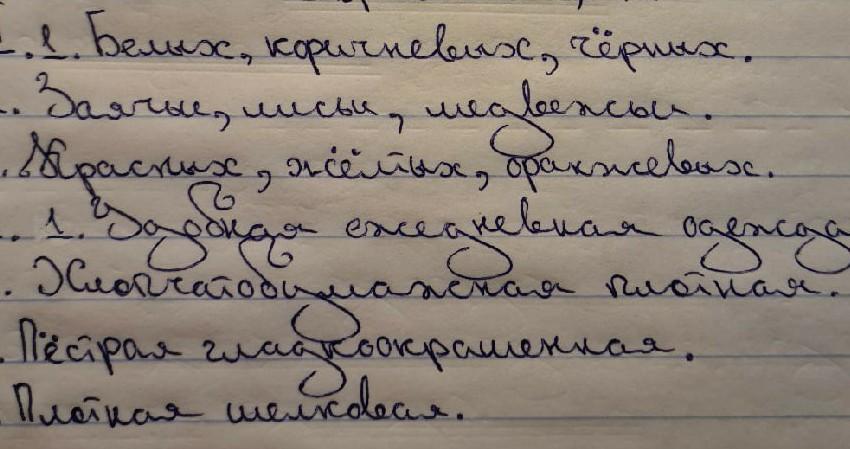 .1. Белых, коричневых, чёрных.
. Заячьи, лисьи, медвежьи.
. Красных, жёлтых, оранжевых.
. 1. Удобная ежедневная одежда
. Хлопчатобумажная плотная.
. Пёстрая гладкоокрашенная.
Плотная шелковая.